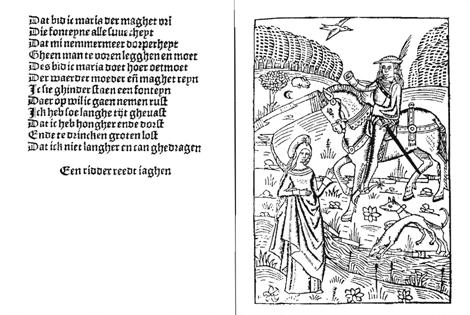 Dat bid ic maria der maghet vrī
Die fonteyne alle suuerheyt
Dat mi nemmermeer dorperheyt
Gheen man te voren legghen en moet
Des bid ic maria doet hoer oetmoet
Der waerder moeder eñ maghet reyn
Ic sie ghinder staen een fonteyn
Daer op wil ic gaen nemen rust
Ick heb soe langhe tijt gheuast
Dat ic heb hongher ende dorst
Ende te drincken groten lost
Dat ick niet langher en can ghedragen
Een ridder reedt iaghen